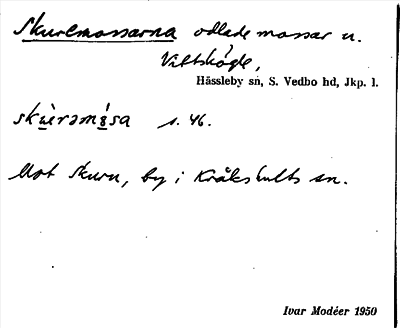 Skuremossarna odlade mossar u.
Viltskögle,
Hässleby sn, S. Vedbo hd, Jkp. l.
skùrəmósa s. 46.
Mot Skuru, by i Kråkshults sn.
Ivar Modéer 1950